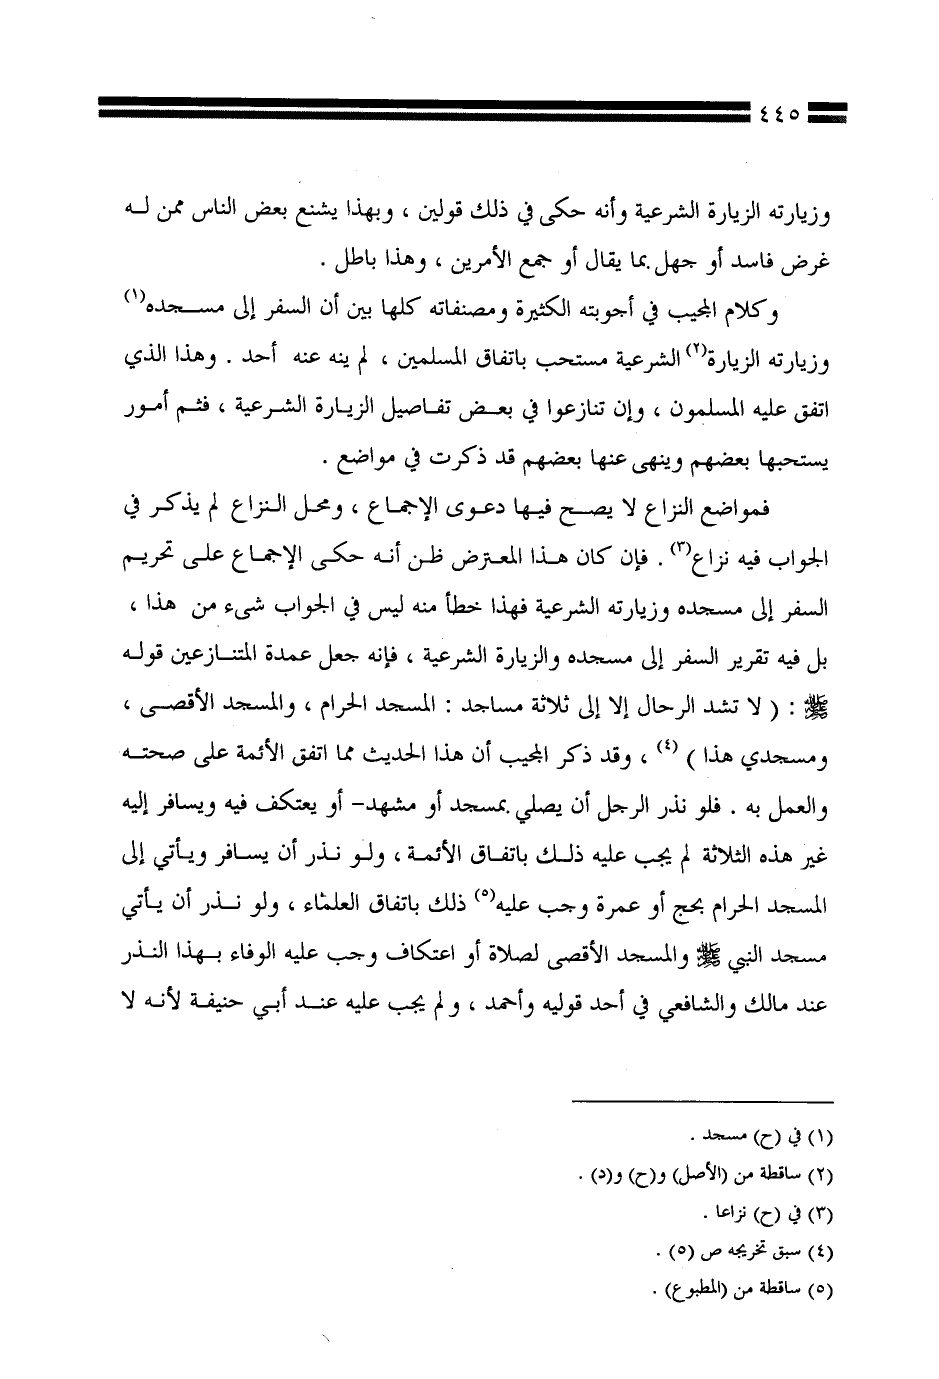 ٤٤٥
وزيارته الزيارة الشرعية وأنه حكى في ذلك قولين ، وبهذا يشنع بعض الناس ممن لـه
غرض فاسد أو جهل بما يقال أو جمع الأمرين ، وهذا باطل .
وكلام المجيب في أجوبته الكثيرة ومصنفاته كلها بين أن السفر إلى مسـجده(١)
وزيارته الزيارة(٢) الشرعية مستحب باتفاق المسلمين ، لم ينه عنه أحد . وهذا الذي
اتفق عليه المسلمون ، وإن تنازعوا في بعـض تفـاصيل الزيـارة الشـرعية ، فثـم أمـور
يستحبها بعضهم وينهى عنها بعضهم قد ذكرت في مواضع .
فمواضع النزاع لا يصـح فيـها دعـوى الإجمـاع ، ومحـل الـنزاع لم يذكـر في
الجواب فيه نزاع(٣) . فإن كان هـذا المعـترض ظـن أنـه حكـى الإجمـاع علـى تحريـم
السفر إلى مسجده وزيارته الشرعية فهذا خطأ منه ليس في الجواب شيء من هذا ،
بل فيه تقرير السفر إلى مسجده والزيارة الشرعية ، فإنه جعل عمدة المتنـازعين قولـه
ﷺ : ( لا تشد الرحال إلا إلى ثلاثة مساجد : المسجد الحرام ، والمسجد الأقصـى ،
ومسجدي هذا ) (٤) ، وقد ذكر المجيب أن هذا الحديث مما اتفق الأئمة على صحتـه
والعمل به . فلو نذر الرجل أن يصلي بمسجد أو مشهد- أو يعتكف فيه ويسافر إليه
غير هذه الثلاثة لم يجب عليه ذلـك باتفـاق الأئمـة ، ولـو نـذر أن يسـافر ويـأتي إلى
المسجد الحرام بحج أو عمرة وجب عليه(٥) ذلك باتفاق العلماء ، ولو نـذر أن يـأتي
مسجد النبي ﷺ والمسجد الأقصى لصلاة أو اعتكاف وجب عليه الوفاء بـهذا النـذر
عند مالك والشافعي في أحد قوليه وأحمد ، ولم يجب عليه عنـد أبـي حنيفـة لأنـه لا
(١) في (ح) مسجد .
(٢) ساقطة من (الأصل) و(ح) و(د) .
(٣) في (ح) نزاعا .
(٤) سبق تخريجه ص (٥) .
(٥) ساقطة من (المطبوع) .